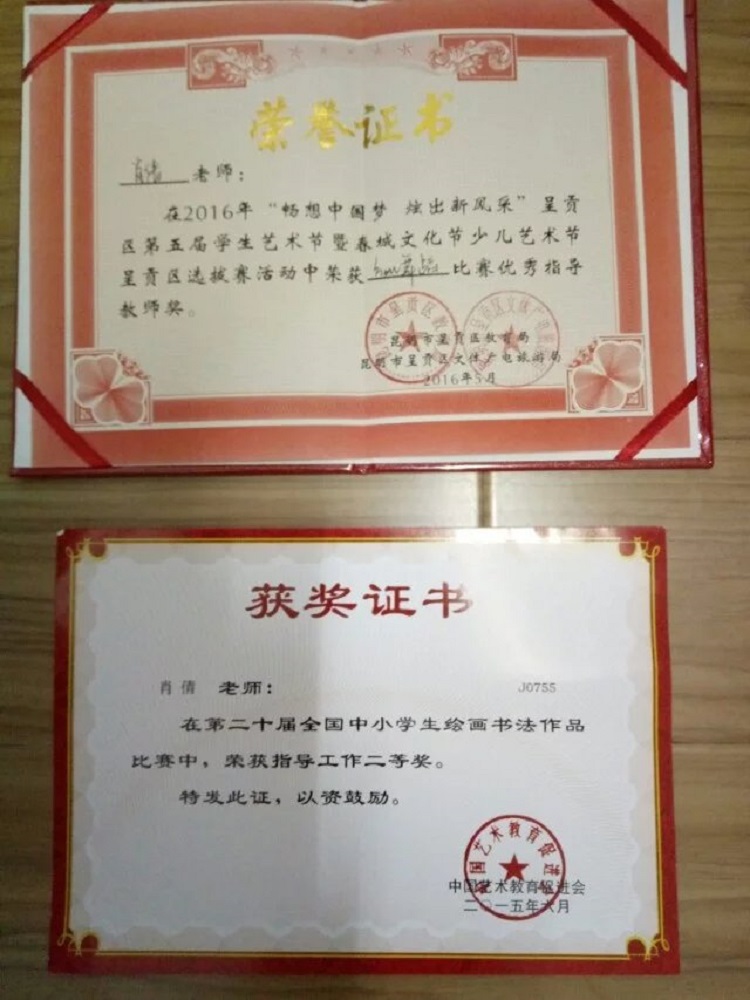 荣誉证书
肖倩 老师：
在2016年“畅想中国梦 炫出新风采”呈贡
区第五届学生艺术节暨春城文化节少儿艺术节
呈贡区选拔赛活动中荣获 比赛优秀指导
教师奖。
昆明市呈贡区教育局
昆明市呈贡区文体广电旅游局
2016年5月
获奖证书
肖倩 老师：
J0755
在第二十届全国中小学生绘画书法作品
比赛中，荣获指导工作二等奖。
特发此证，以资鼓励。
中国艺术教育促进会
二〇一五年六月